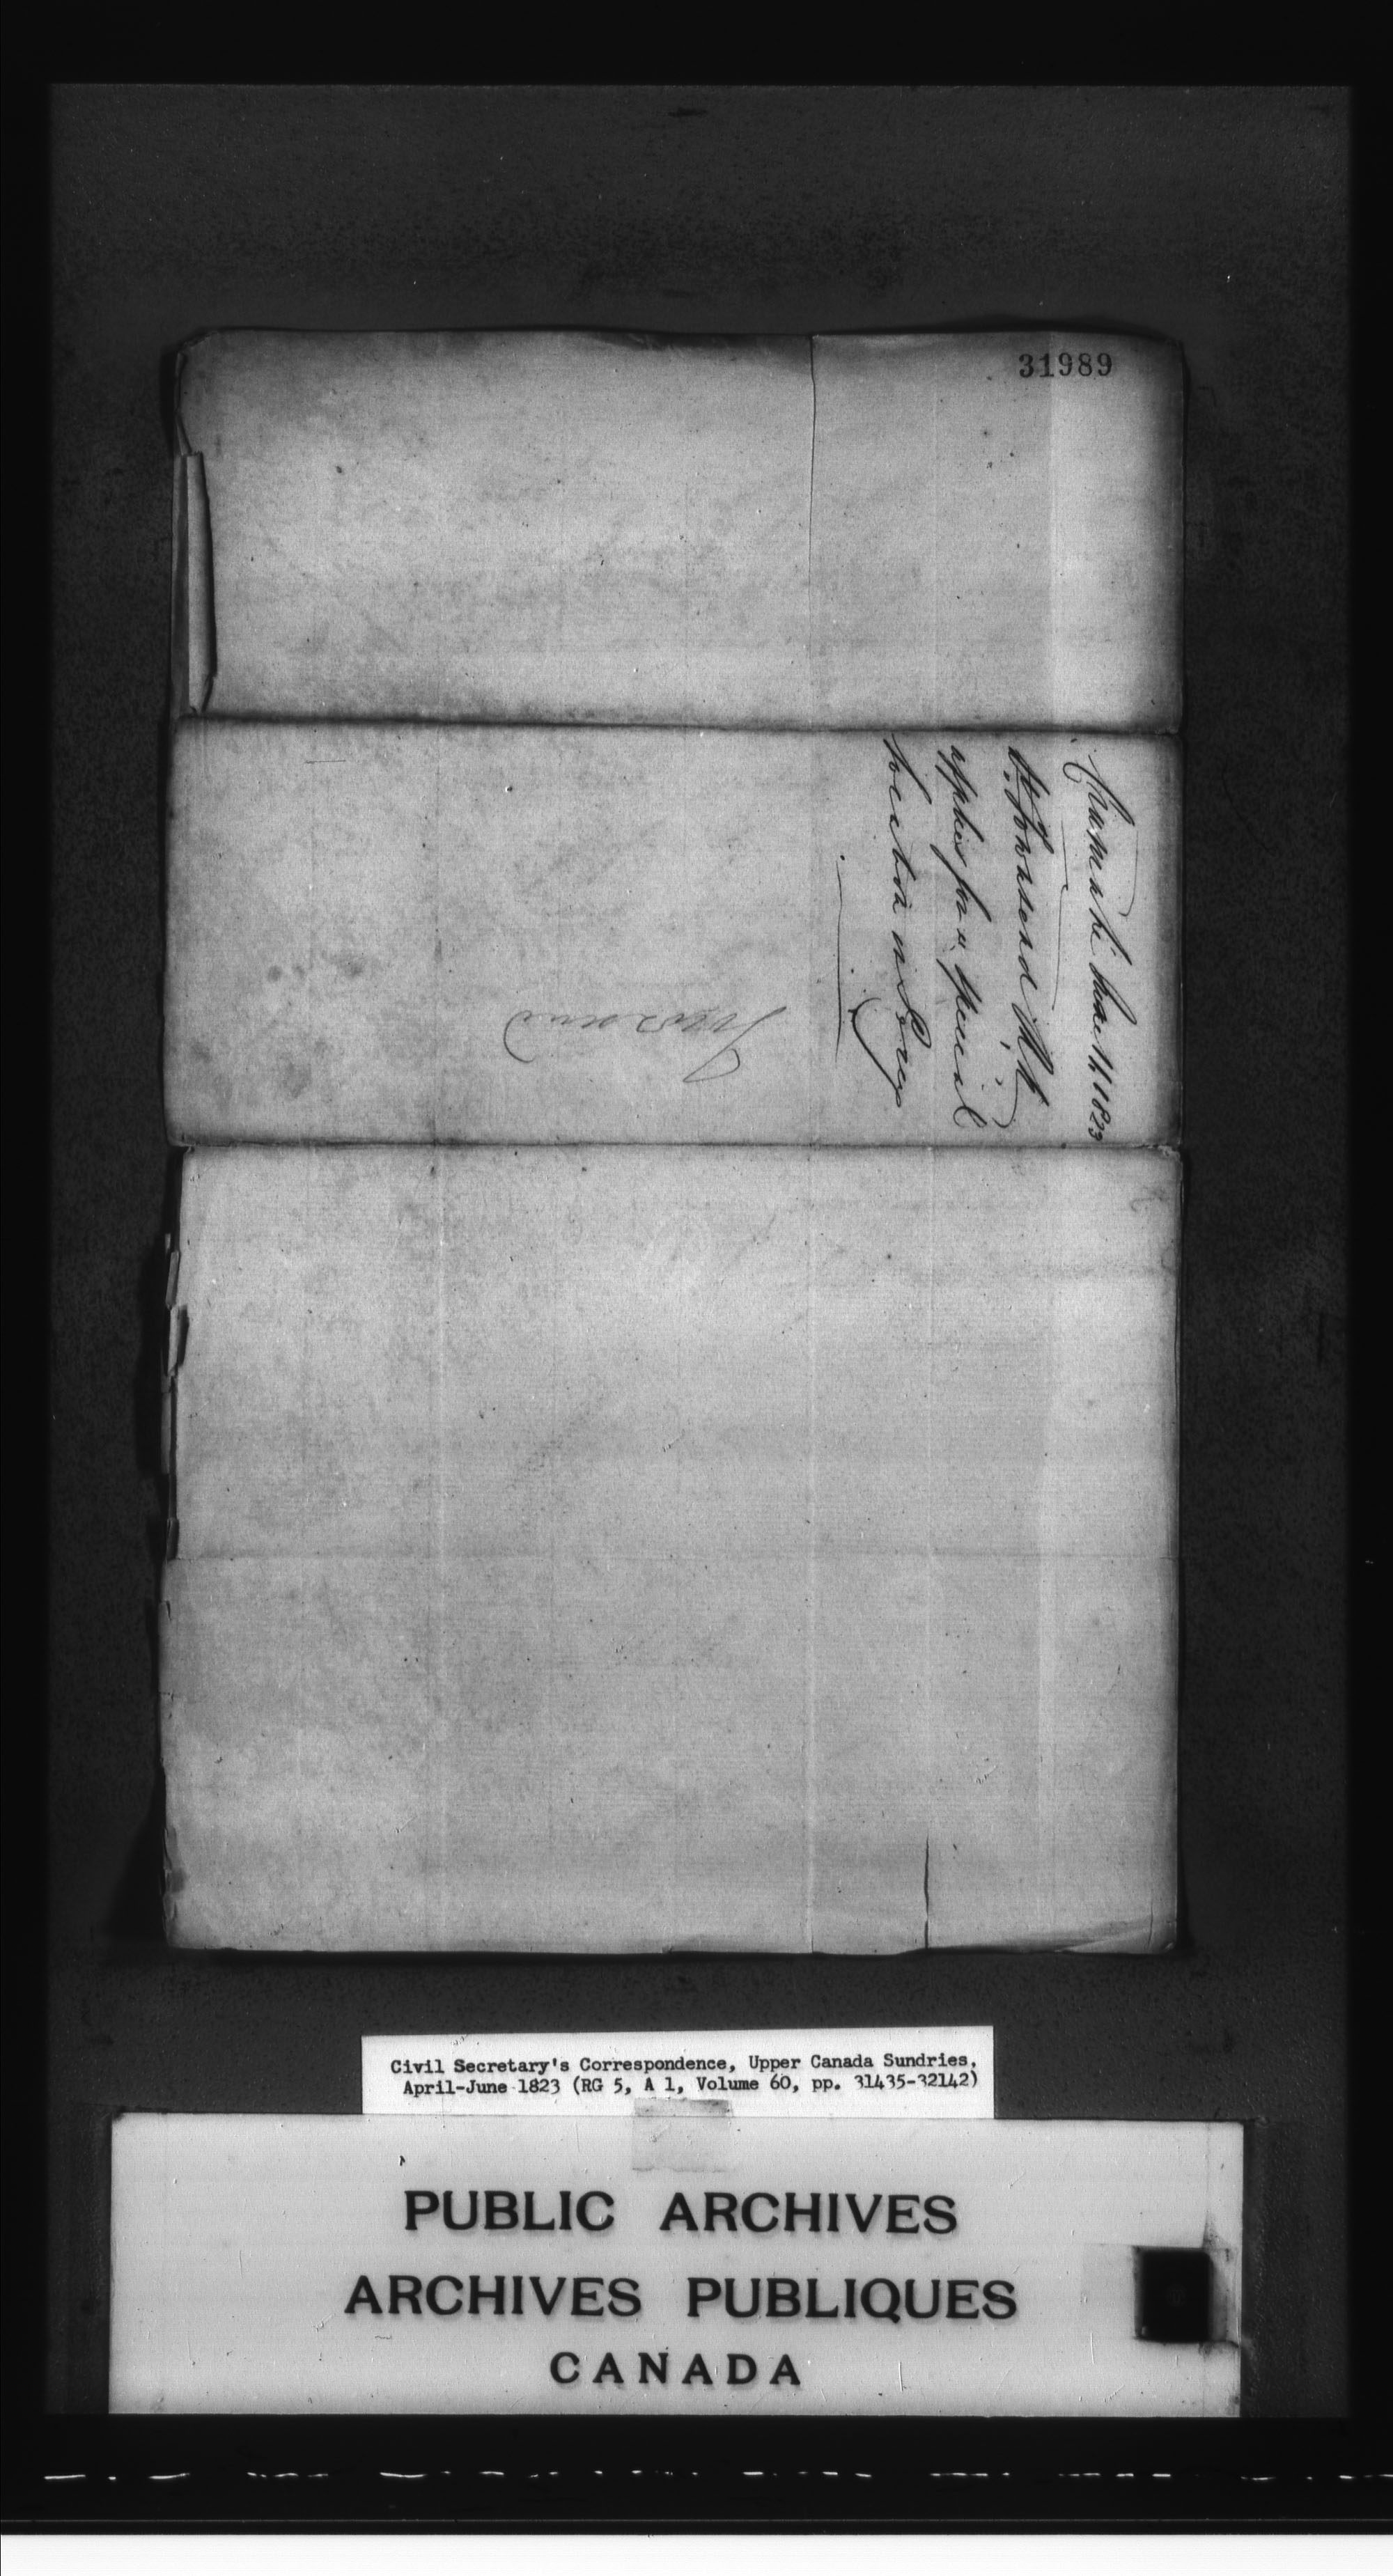 31989
June 11 1823
applies for a special
location in
Civil Secretary's Correspondence, Upper Canada Sundries,
April-June 1823 (RG 5, A 1, Volume 60, pp. 31435-32142)
PUBLIC ARCHIVES
ARCHIVES PUBLIQUES
CANADA